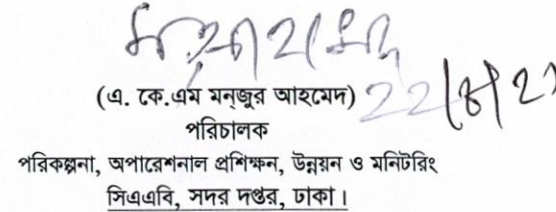 (এ. কে.এম মন্‌জুর আহমেদ)
পরিচালক
পরিকল্পনা, অপারেশনাল প্রশিক্ষন, উন্নয়ন ও মনিটরিং
সিএএবি, সদর দপ্তর, ঢাকা।